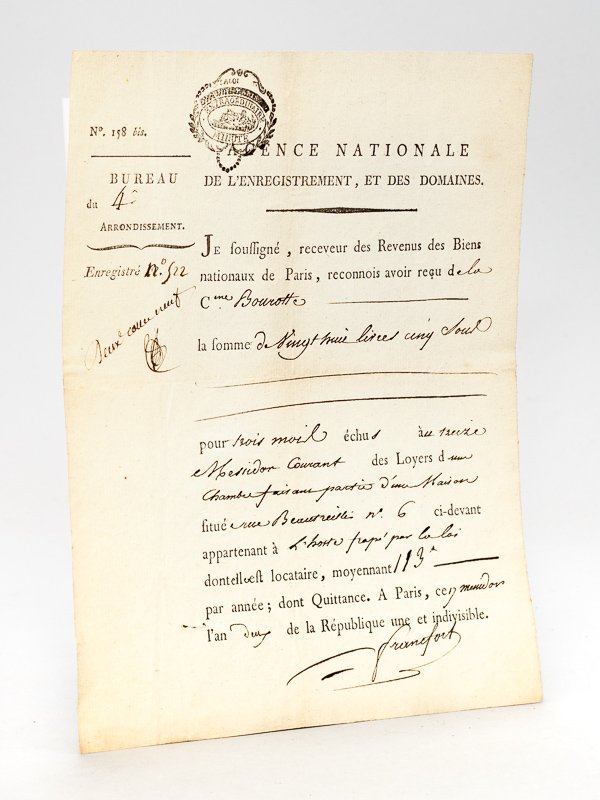 N°. 158 bis.
EXTRAORDINAIRE
MINUTE
AGENCE NATIONALE
DE L'ENREGISTREMENT, ET DES DOMAINES.
BUREAU
du 4e
ARRONDISSEMENT.
Enregistré n.° 522
JE soussigné, receveur des Revenus des Biens
nationaux de Paris, reconnois avoir reçu de la
Cne Bourotte
la somme de Vingt huit livres cinq Sous
pour trois mois échus au treize
Messidor Courant des Loyers d'une
Chambre faisant partie d'une Maison
situé e rue Beautreillis n.° 6 ci-devant
appartenant à L'hoste frapé par la loi
dont elle est locataire, moyennant 113
par année; dont Quittance. A Paris, ce 17 messidor
l'an deux de la République une et indivisible.
Francfort